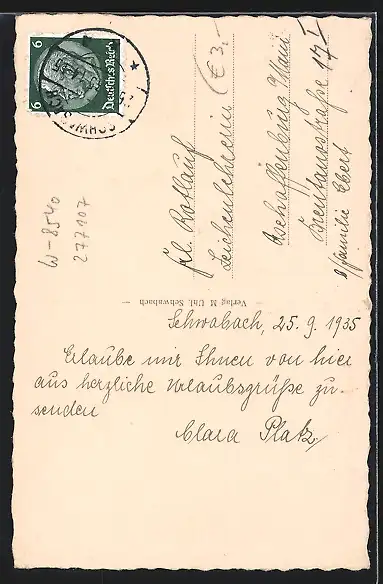 6
Deutsches Reich
6
SCHWABACH
Frl. Rotlauf
Zeichenlehrerin
(€ 3.-
Aschaffenburg /Main
Brentanostraße 17 I
b/Familie Ebert
W-8540
277107
Verlag M Uhl, Schwabach
Schwabach, 25.9.1935
Erlaube mir Ihnen von hier
aus herzliche Urlaubsgrüße zu-
senden
Clara Platz